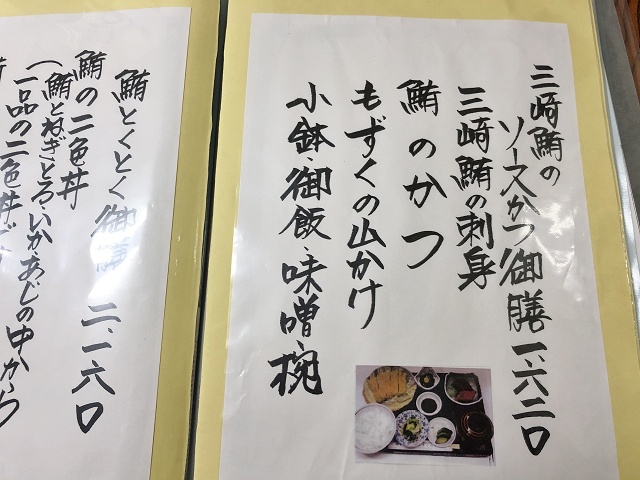 三崎鮪の
ソースかつ御膳 一、六二〇
三崎鮪の刺身
鮪のかつ
もずくの山かけ
小鉢・御飯・味噌椀
鮪とくとく御膳 二、一六〇
鮪の二色丼
(鮪とねぎとろ、いか、あじの中から
一品の二色丼